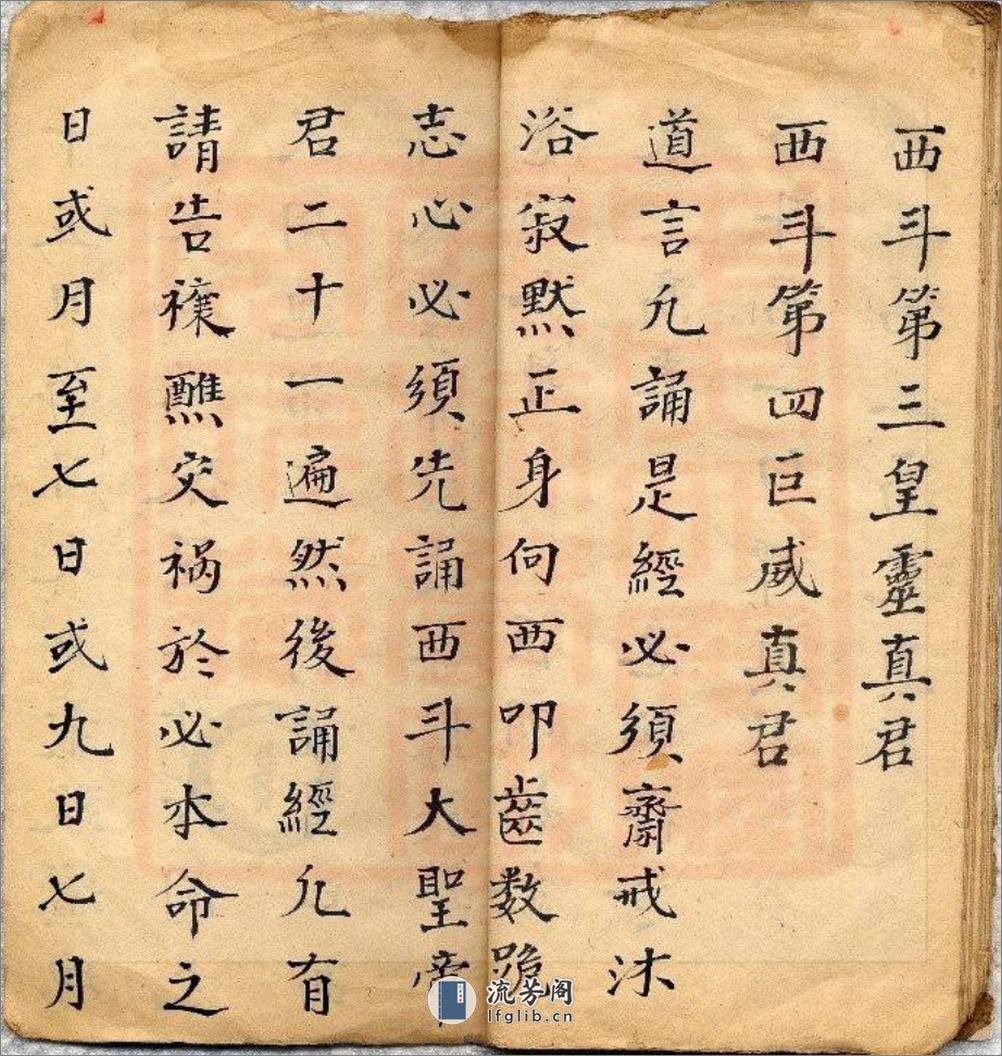 西斗第三皇靈真君
西斗第四巨威真君
道言凢誦是經必須齋戒沐
浴寂默正身向西叩齒数跪
志心必須先誦西斗大聖帝
君二十一遍然後誦經凢有
請告禳醮灾禍於必本命之
日或月至七日或九日七月
流芳阁
lfglib.cn